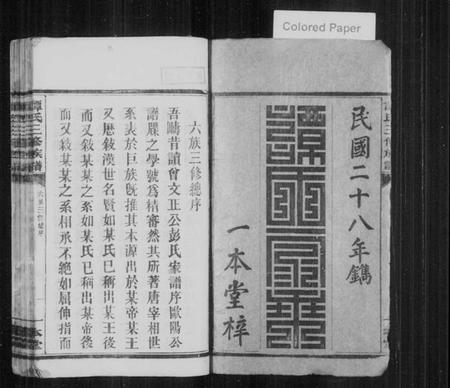 Colored Paper
民國二十八年鐫
譚氏家乘
一本堂梓
六族三修總序
吾疇昔讀曾文正公彭氏家譜序歐陽公
譜牒之學號為精審然其所著唐宰相世
系表於巨族既推其本源出於某帝某王
又歷敍漢世名賢如某氏已稱出某王後
而又敍某某之系如某氏已稱出某帝後
而又敍某某之系相承不絕如屈伸指而
譚氏三修族譜
六族三修總序
一本堂